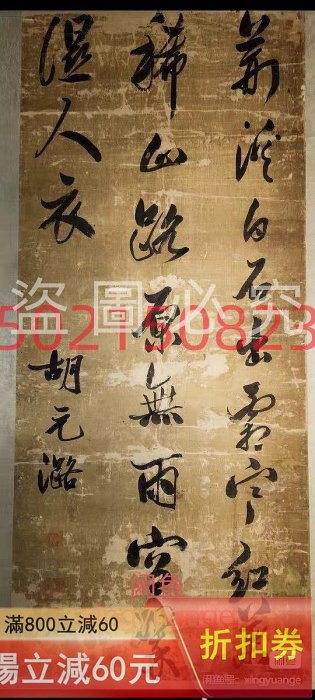 荆溪白石出霜寒红葉
稀山路原無雨空翠
濕人衣
胡元潞
盜圖必究
滿800立減60
立減60元
折扣券
xingyuange